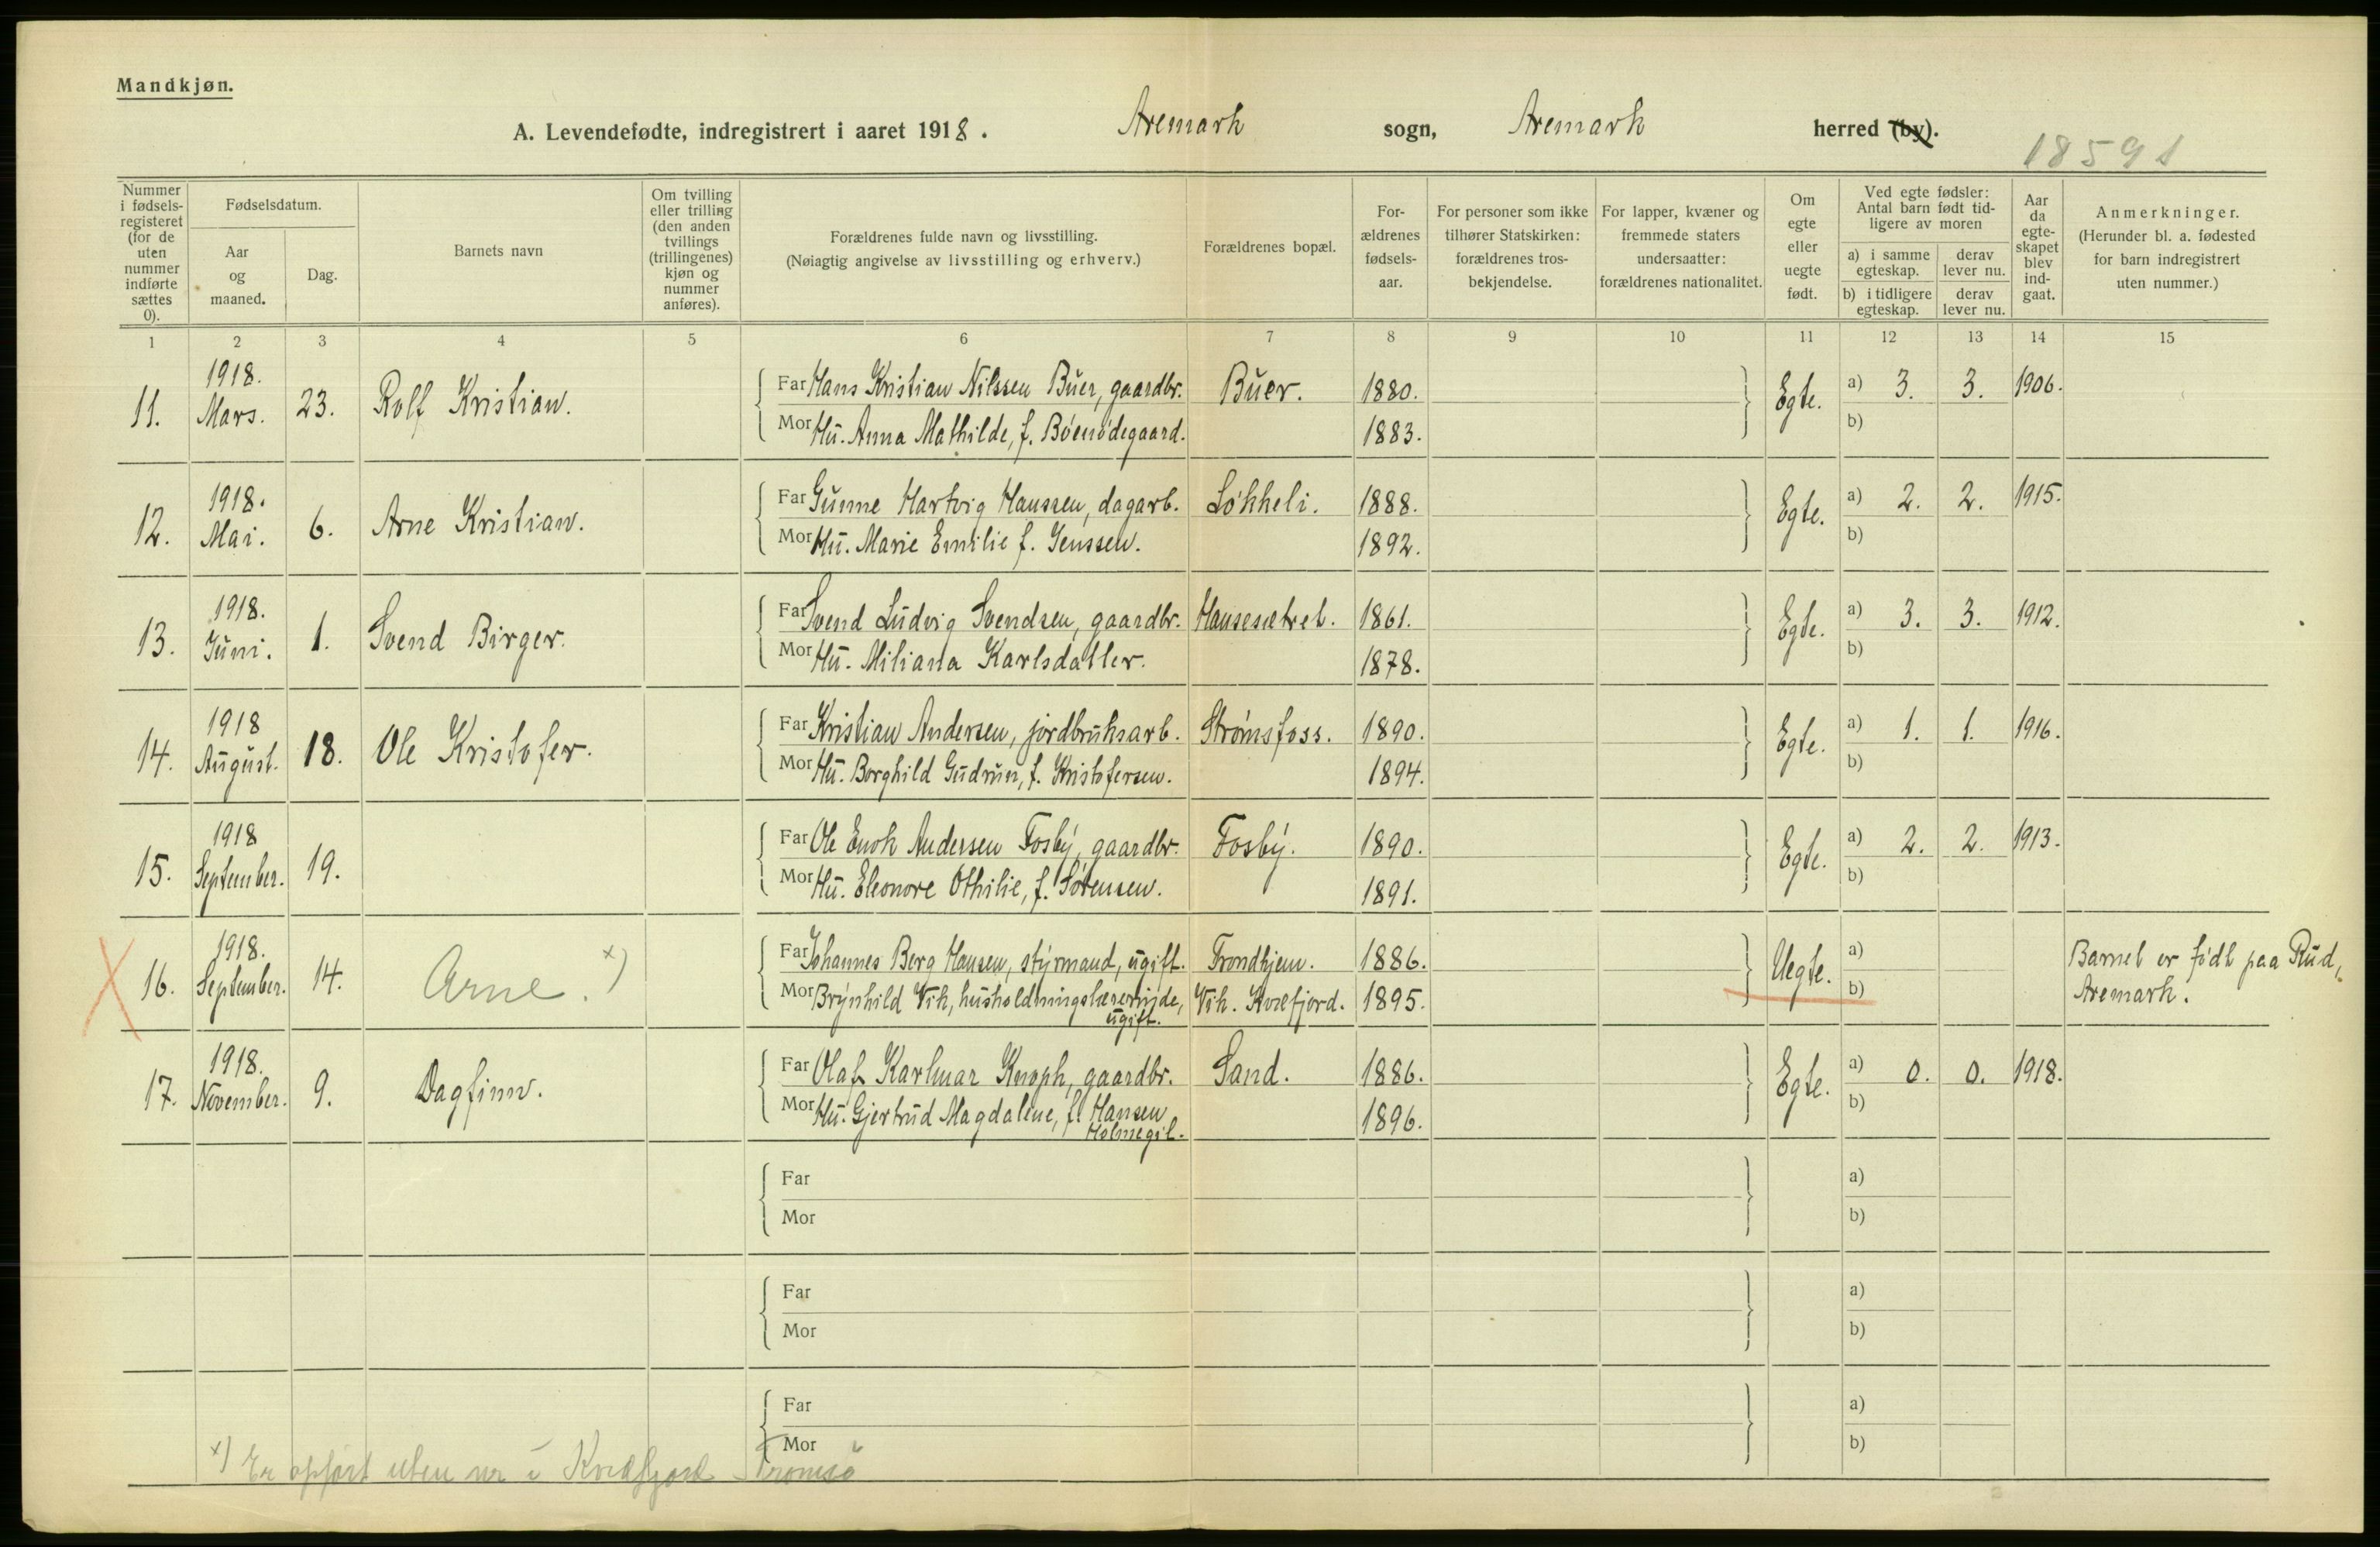 Mandkjøn.
A. Levendefødte, indregistrert i aaret 1918. Aremark sogn, Aremark herred (by).
18591
Nummer i fødselsregisteret (for de uten nummer indførte sættes 0).
Fødselsdatum.
Aar og maaned.
Dag.
Barnets navn
Om tvilling eller trilling (den anden tvillings (trillingenes) kjøn og nummer anføres).
Forældrenes fulde navn og livsstilling.
(Nøiagtig angivelse av livsstilling og erhverv.)
Forældrenes bopæl.
Forældrenes fødselsaar.
For personer som ikke tilhører Statskirken: forældrenes trosbekjendelse.
For lapper, kvæner og fremmede staters undersaatter: forældrenes nationalitet.
Om egte eller uegte født.
Ved egte fødsler: Antal barn født tidligere av moren
a) i samme egteskap.
derav lever nu.
b) i tidligere egteskap.
derav lever nu.
Aar da egteskapet blev indgaat.
Anmerkninger.
(Herunder bl. a. fødested for barn indregistrert uten nummer.)
1 2 3 4 5 6 7 8 9 10 11 12 13 14 15
11. 1918. Mars. 23. Rolf Kristian.
Far Hans Kristian Nilssen Buer, gaardbr. Buer. 1880. Egte. a) 3. 3. 1906.
Mor Hu. Anna Mathilde, f. Bøenødegaard. 1883. b)
12. 1918. Mai. 6. Arne Kristian.
Far Gunne Hartvig Hanssen, dagarb. Løkheli. 1888. Egte. a) 2. 2. 1915.
Mor Hu. Marie Emilie f. Jenssen. 1892. b)
13. 1918. Juni. 1. Svend Birger.
Far Svend Ludvig Svendsen, gaardbr. Hansesætret. 1861. Egte. a) 3. 3. 1912.
Mor Hu. Miliana Karlsdatter. 1878. b)
14. 1918 August. 18. Ole Kristofer.
Far Kristian Andersen, jordbruksarb. Strømsfoss. 1890. Egte. a) 1. 1. 1916.
Mor Hu. Borghild Gudrun, f. Kristofersen. 1894. b)
15. 1918 September. 19.
Far Ole Enok Andersen Fosby, gaardbr. Fosby. 1890. Egte. a) 2. 2. 1913.
Mor Hu. Eleonore Othilie, f. Sørensen. 1891. b)
16. 1918. September. 14. Arne. x)
Far Johannes Berg Hansen, styrmand, ugift. Trondhjem. 1886. Uegte. a) Barnet er født paa Rud,
Mor Brynhild Vik, husholdningslærerinde, ugift. Vik. Kvæfjord. 1895. b) Aremark.
17. 1918. November. 9. Dagfinn.
Far Olaf Karlmar Knoph, gaardbr. Sand. 1886. Egte. a) 0. 0. 1918.
Mor Hu. Gjertrud Magdalene, f. Hansen Holmegil. 1896. b)
Far a)
Mor b)
Far a)
Mor b)
Far a)
Mor b)
x) Er opført uten nr i Kvæfjord Tromsø